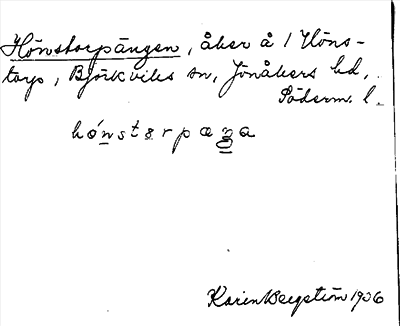 Hönstorpängen, åker å 1 Höns-
torp, Björkviks sn, Jönåkers hd,
Söderm. l.
hö́nstərpæŋa
Karin Bergström 1906